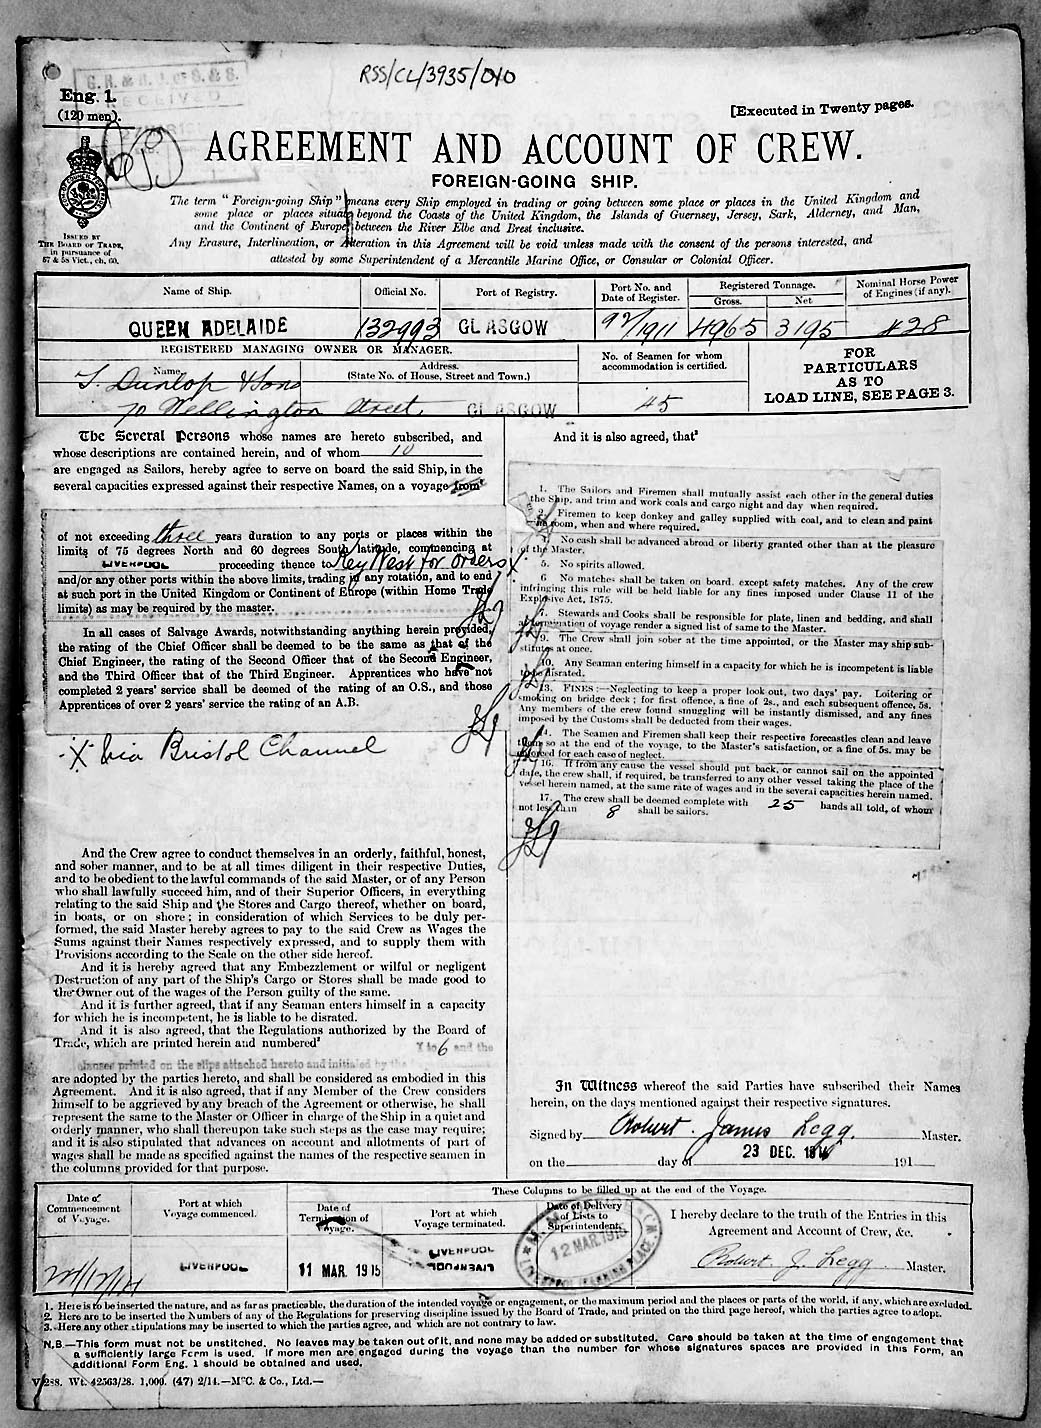 RSS/CL/3935/010
G. R. & R. J. of S. & S.
RECEIVED
Eng. 1.
(120 men).
[Executed in Twenty pages.
AGREEMENT AND ACCOUNT OF CREW.
FOREIGN-GOING SHIP.
ISSUED BY
THE BOARD OF TRADE,
in pursuance of
57 & 58 Vict., ch. 60.
The term "Foreign-going Ship" means every Ship employed in trading or going between some place or places in the United Kingdom and
some place or places situate beyond the Coasts of the United Kingdom, the Islands of Guernsey, Jersey, Sark, Alderney, and Man,
and the Continent of Europe between the River Elbe and Brest inclusive.
Any Erasure, Interlineation, or Alteration in this Agreement will be void unless made with the consent of the persons interested, and
attested by some Superintendent of a Mercantile Marine Office, or Consular or Colonial Officer.
Name of Ship. Official No. Port of Registry. Port No. and Date of Register. Registered Tonnage. Gross. Net Nominal Horse Power of Engines (if any).
QUEEN ADELAIDE 132993 GLASGOW 92/1911 4965 3195 428
REGISTERED MANAGING OWNER OR MANAGER.
Name. Address.
(State No. of House, Street and Town.)
No. of Seamen for whom
accommodation is certified.
FOR
PARTICULARS
AS TO
LOAD LINE, SEE PAGE 3.
T. Dunlop & Sons
70 Wellington Street, GLASGOW 45
The Several Persons whose names are hereto subscribed, and
whose descriptions are contained herein, and of whom 10
are engaged as Sailors, hereby agree to serve on board the said Ship, in the
several capacities expressed against their respective Names, on a voyage from
of not exceeding three years duration to any ports or places within the
limits of 75 degrees North and 60 degrees South latitude, commencing at
LIVERPOOL proceeding thence to Key West for orders X
and/or any other ports within the above limits, trading in any rotation, and to end
at such port in the United Kingdom or Continent of Europe (within Home Trade
limits) as may be required by the master.
In all cases of Salvage Awards, notwithstanding anything herein provided,
the rating of the Chief Officer shall be deemed to be the same as that of the
Chief Engineer, the rating of the Second Officer that of the Second Engineer,
and the Third Officer that of the Third Engineer. Apprentices who have not
completed 2 years' service shall be deemed of the rating of an O.S., and those
Apprentices of over 2 years' service the rating of an A.B.
X via Bristol Channel
And the Crew agree to conduct themselves in an orderly, faithful, honest,
and sober manner, and to be at all times diligent in their respective Duties,
and to be obedient to the lawful commands of the said Master, or of any Person
who shall lawfully succeed him, and of their Superior Officers, in everything
relating to the said Ship and the Stores and Cargo thereof, whether on board,
in boats, or on shore; in consideration of which Services to be duly per-
formed, the said Master hereby agrees to pay to the said Crew as Wages the
Sums against their Names respectively expressed, and to supply them with
Provisions according to the Scale on the other side hereof.
And it is hereby agreed that any Embezzlement or wilful or negligent
Destruction of any part of the Ship's Cargo or Stores shall be made good to
the Owner out of the wages of the Person guilty of the same.
And it is further agreed, that if any Seaman enters himself in a capacity
for which he is incompetent, he is liable to be disrated.
And it is also agreed, that the Regulations authorized by the Board of
Trade, which are printed herein and numbered² 1 to 6 and the
clauses printed on the slips attached hereto and initialed by the
are adopted by the parties hereto, and shall be considered as embodied in this
Agreement. And it is also agreed, that if any Member of the Crew considers
himself to be aggrieved by any breach of the Agreement or otherwise, he shall
represent the same to the Master or Officer in charge of the Ship in a quiet and
orderly manner, who shall thereupon take such steps as the case may require;
and it is also stipulated that advances on account and allotments of part of
wages shall be made as specified against the names of the respective seamen in
the columns provided for that purpose.
And it is also agreed, that³
1. The Sailors and Firemen shall mutually assist each other in the general duties
the Ship, and trim and work coals and cargo night and day when required.
2. Firemen to keep donkey and galley supplied with coal, and to clean and paint
room, when and where required.
4. No cash shall be advanced abroad or liberty granted other than at the pleasure
of the Master.
5. No spirits allowed.
6 No matches shall be taken on board except safety matches. Any of the crew
infringing this rule will be held liable for any fines imposed under Clause 11 of the
Explosive Act, 1875.
7. Stewards and Cooks shall be responsible for plate, linen and bedding, and shall
at termination of voyage render a signed list of same to the Master.
9. The Crew shall join sober at the time appointed, or the Master may ship sub-
stitutes at once.
10. Any Seaman entering himself in a capacity for which he is incompetent is liable
to be disrated.
13. FINES:—Neglecting to keep a proper look out, two days' pay. Loitering or
smoking on bridge deck; for first offence, a fine of 2s., and each subsequent offence, 5s.
Any members of the crew found smuggling will be instantly dismissed, and any fines
imposed by the Customs shall be deducted from their wages.
14. The Seamen and Firemen shall keep their respective forecastles clean and leave
them so at the end of the voyage, to the Master's satisfaction, or a fine of 5s. may be
enforced for each case of neglect.
16. If from any cause the vessel should put back, or cannot sail on the appointed
date, the crew shall, if required, be transferred to any other vessel taking the place of the
vessel herein named, at the same rate of wages and in the several capacities herein named.
17. The crew shall be deemed complete with 25 hands all told, of whom
not less than 8 shall be sailors.
In Witness whereof the said Parties have subscribed their Names
herein, on the days mentioned against their respective signatures.
Signed by Robert James Legg. Master.
on the day of 23 DEC. 191
These Columns to be filled up at the end of the Voyage.
Date of
Commencement
of Voyage.
Port at which
Voyage commenced.
Date of
Termination of
Voyage.
Port at which
Voyage terminated.
Date of Delivery
of Lists to
Superintendent.
I hereby declare to the truth of the Entries in this
Agreement and Account of Crew, &c.
LIVERPOOL 11 MAR. 1915 LIVERPOOL
LIVERPOOL
12 MAR. 1915
Robert J. Legg Master.
1. Here is to be inserted the nature, and as far as practicable, the duration of the intended voyage or engagement, or the maximum period and the places or parts of the world, if any, which are excluded.
2. Here are to be inserted the Numbers of any of the Regulations for preserving discipline issued by the Board of Trade, and printed on the third page hereof, which the parties agree to adopt.
3. Here any other stipulations may be inserted to which the parties agree, and which are not contrary to law.
N.B.—This form must not be unstitched. No leaves may be taken out of it, and none may be added or substituted. Care should be taken at the time of engagement that
a sufficiently large Form is used. If more men are engaged during the voyage than the number for whose signatures spaces are provided in this Form, an
additional Form Eng. 1 should be obtained and used.
V 288. Wt. 42563/28. 1,000. (47) 2/14.—McC. & Co., Ltd.—